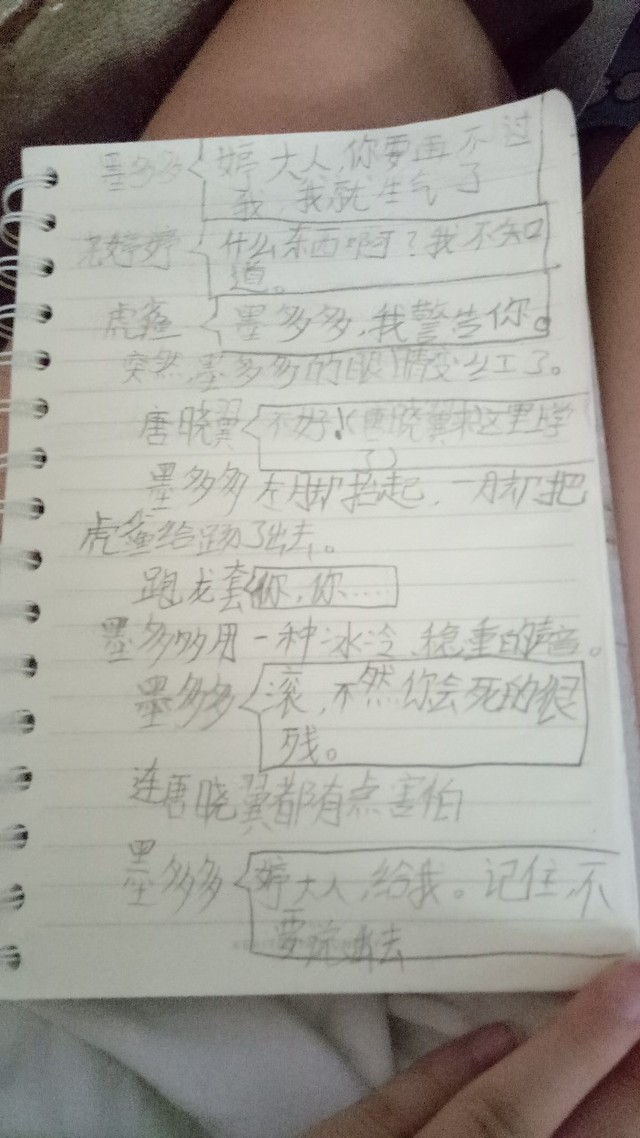 墨多多 婷大人,你要再不过
我,我就生气了
尧婷婷 什么东西啊?我不知
道。
虎鲨 墨多多,我警告你。
突然,墨多多的眼睛变红了。
唐晓翼 不好!(唐晓翼来这里上学
了)
墨多多左脚抬起,一脚把
虎鲨给踢了出去。
跑龙套 你,你……
墨多多用一种冰冷、稳重的声音。
墨多多 滚,不然你会死的很
残。
连唐晓翼都有点害怕
墨多多 婷大人,给我。记住,不
要说出去